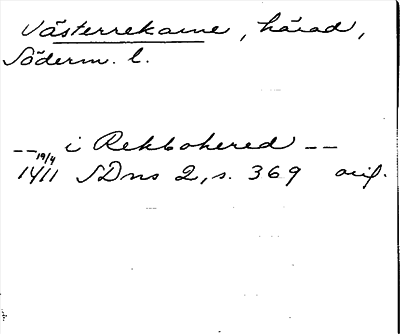 Västerrekarne, härad,
Söderm. l.
-- i Rekbohered --
19/4
1411 SDns 2, s. 369 orig.